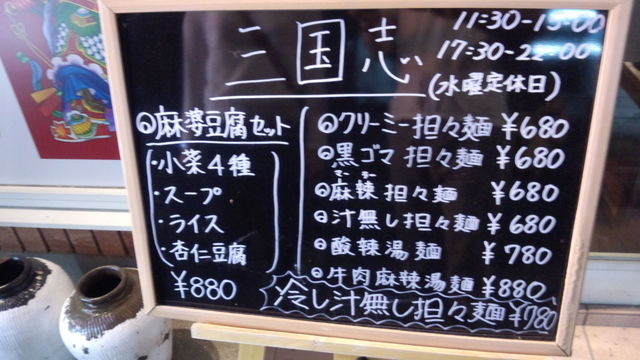 三国志
11:30-15:00
17:30-22:00
(水曜定休日)
麻婆豆腐セット
・小菜4種
・スープ
・ライス
・杏仁豆腐
¥880
クリーミー担々麺 ¥680
黒ゴマ担々麺 ¥680
マーラー
麻辣担々麺 ¥680
汁無し担々麺 ¥680
酸辣湯麺 ¥780
牛肉麻辣湯麺 ¥880
冷し汁無し担々麺 ¥780